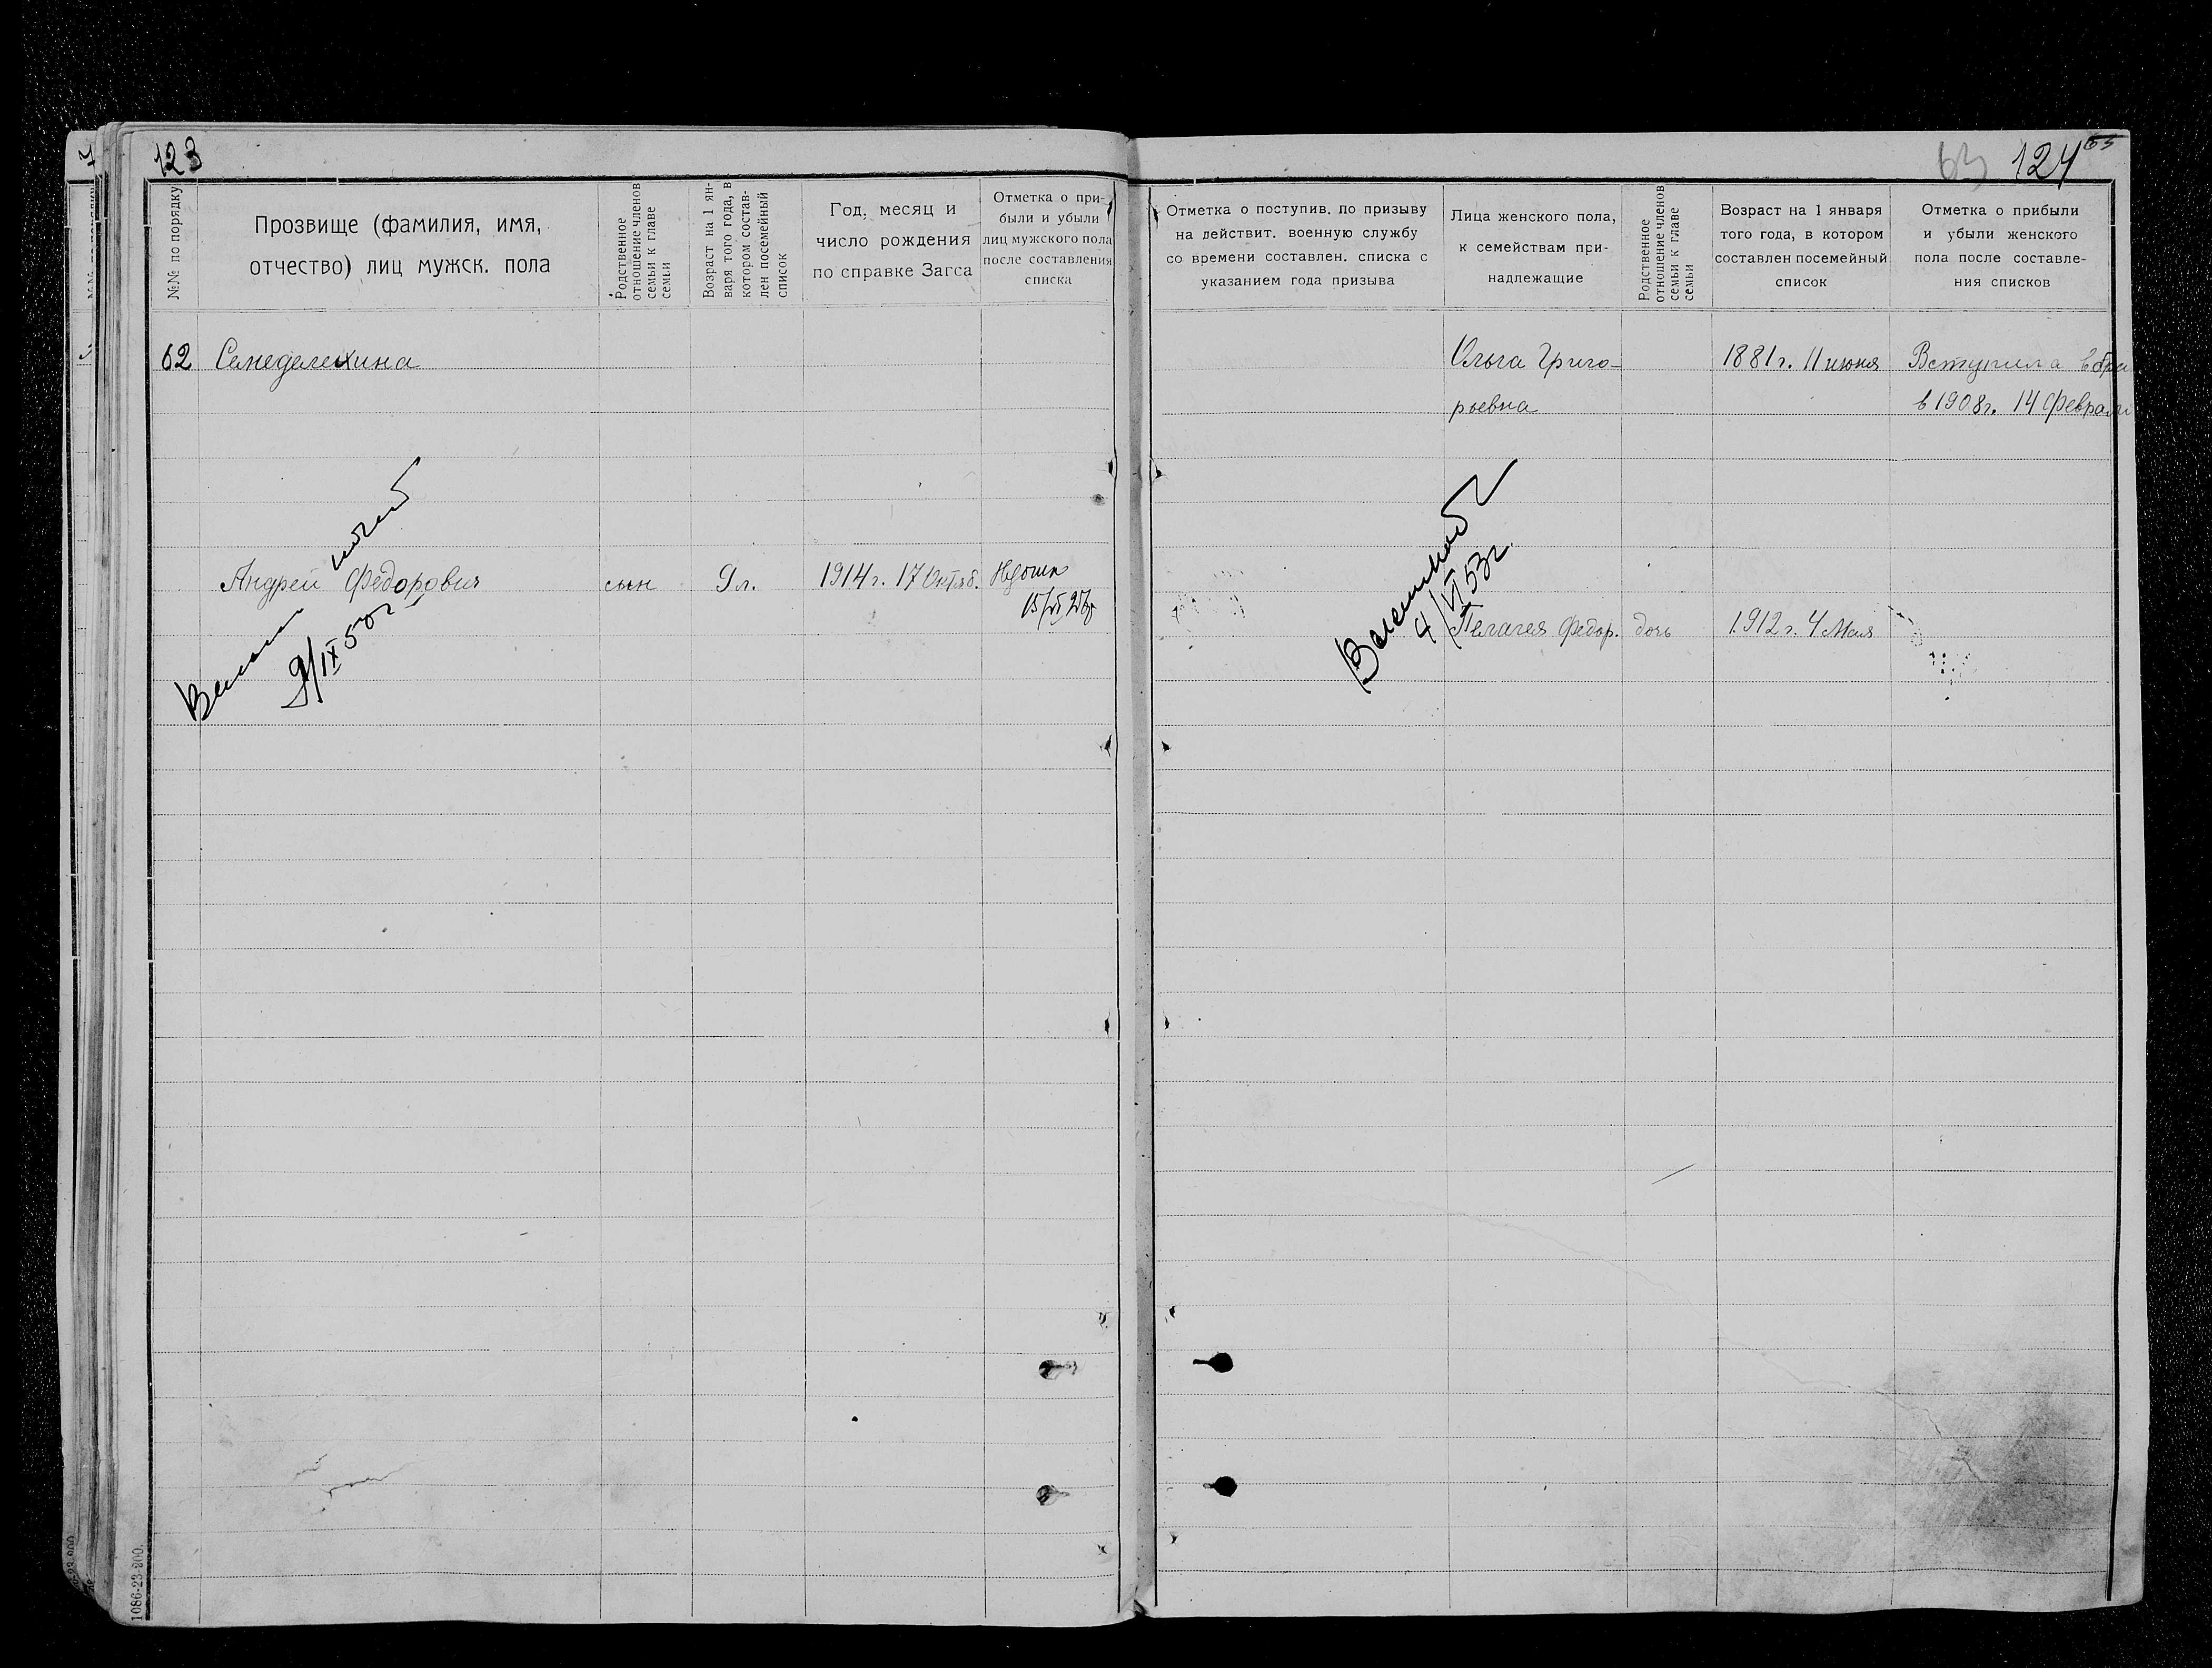 123
№№ по порядку
Прозвище (фамилия, имя,
отчество) лиц мужск. пола
Родственное
отношение членов
семьи к главе
семьи
Возраст на 1 ян-
варя того года, в
котором состав-
лен посемейный
список
Год, месяц и
число рождения
по справке Загса
Отметка о при-
были и убыли
лиц мужского пола
после составления
списка
62 Семеделехина
Андрей Федорович сын 9 л. 1914 г. 17 Октяб.
9/IX 50 г
1086-23-200.
63 124
Отметка о поступив. по призыву
на действит. военную службу
со времени составлен. списка с
указанием года призыва
Лица женского пола,
к семействам при-
надлежащие
Родственное
отношение членов
семьи к главе
семьи
Возраст на 1 января
того года, в котором
составлен посемейный
список
Отметка о прибыли
и убыли женского
пола после составле-
ния списков
Ольга Григо- 1881 г. 11 июня Вступила в бра
рьевна в 1908 г. 14 Феврали
4/VI 53 г.
Пелагея Федор. дочь 1912 г. 4 Мая